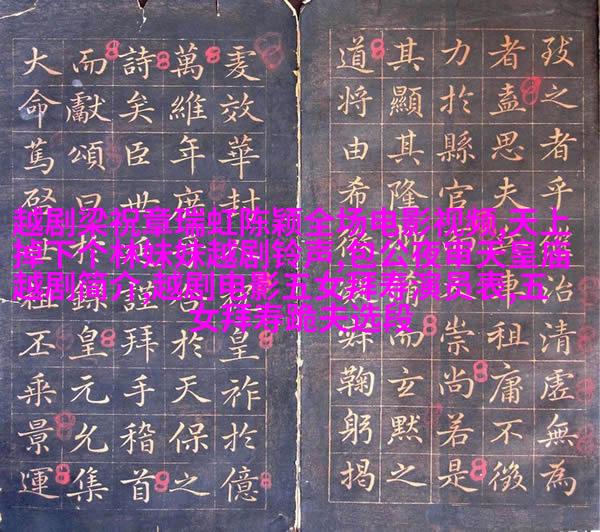 越剧梁祝章瑞虹陈颖全场电影视频,天上
掉下个林妹妹越剧铃声,包公夜审天皇庙
越剧简介,越剧电影五女拜寿演员表,五
女拜寿跪夫选段
致之者乎治清虛無為
者盍思夫租庸不徵
力於縣官崇尚若是
其顯其隆而玄默之
道將由希鞠躬揭
效華封皇祚於億
萬維年於天保之
詩矣臣世謹拜手稽首
而獻頌曰錄皇元允集
大命篤祖丕乘景運